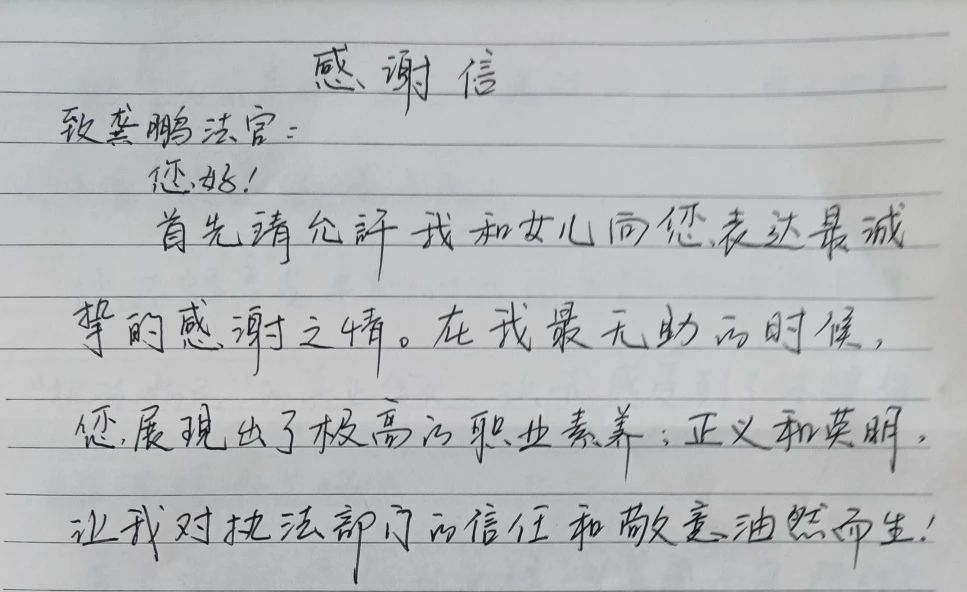 感谢信
致龚鹏法官：
您好！
首先請允許我和女儿向您表达最诚
挚的感谢之情。在我最无助的时候，
您展現出了极高的职业素养；正义和英明，
让我对执法部门的信任和敬意油然而生！